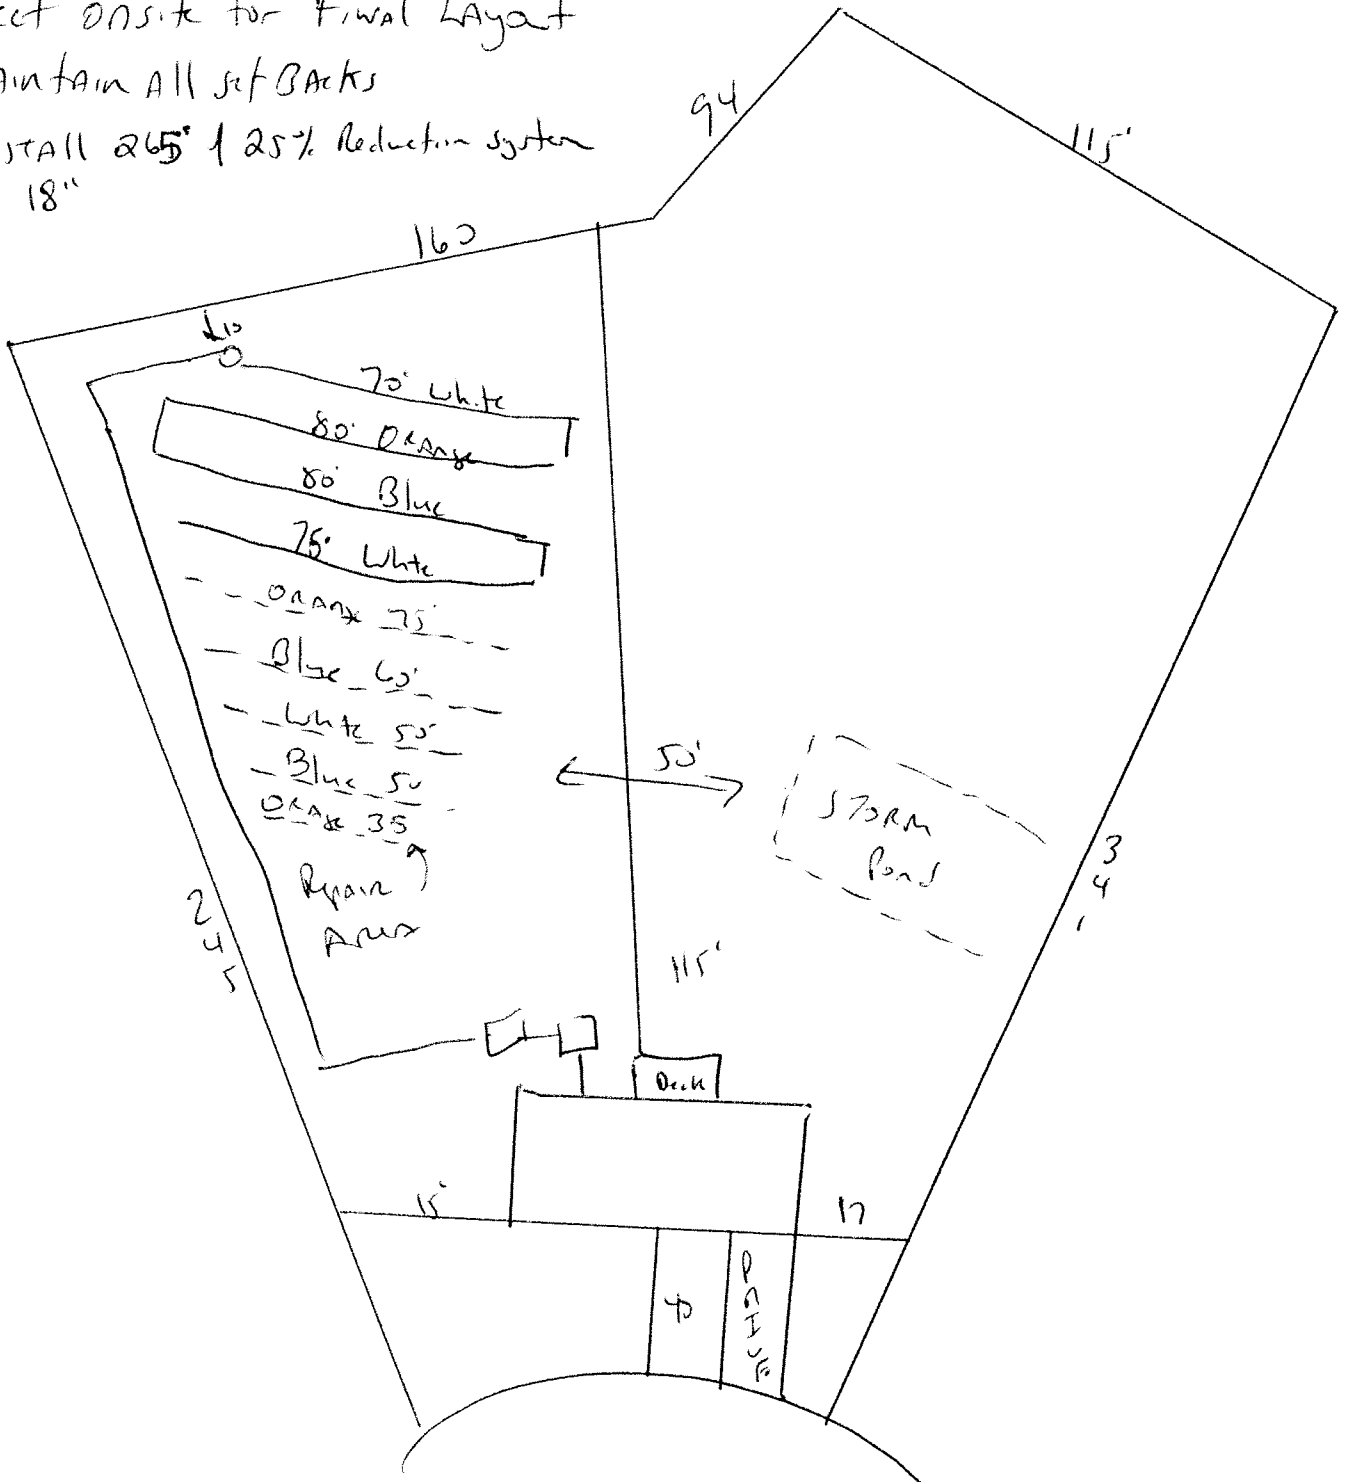 ect onsite for Final Layout
aintain All setBacks
STAll 265' f 25% Reduction system
18"
94
115'
160
10
70' White
80' ORange
80' Blue
75' White
ORANge 75'
Blue 60'
White 50'
Blue 50
ORANge 35
Repair
Area
50'
STORM
Pond
341
245
115'
Deck
15'
17
40
DRIVE